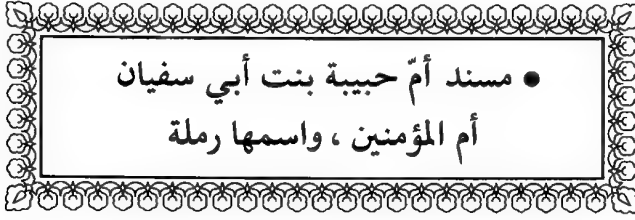 ● مسند أمّ حبيبة بنت أبي سفيان
أم المؤمنين ، واسمها رملة